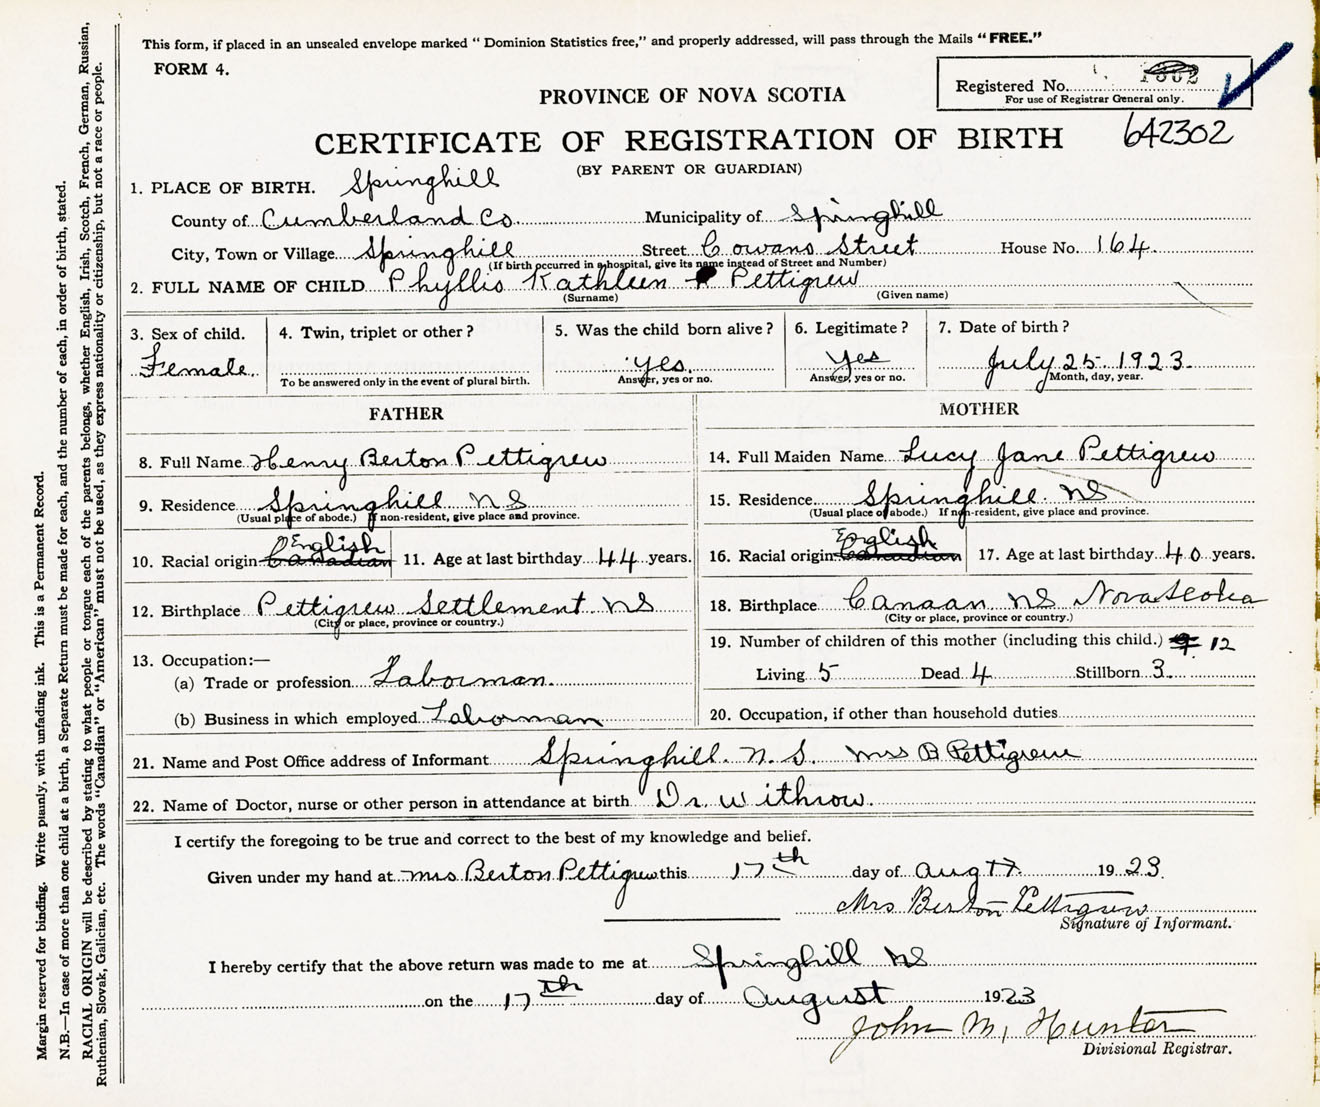 This form, if placed in an unsealed envelope marked “ Dominion Statistics free,” and properly addressed, will pass through the Mails “FREE.”
FORM 4.
Registered No. 1302
For use of Registrar General only.
PROVINCE OF NOVA SCOTIA
CERTIFICATE OF REGISTRATION OF BIRTH 642302
(BY PARENT OR GUARDIAN)
1. PLACE OF BIRTH. Springhill
County of Cumberland Co. Municipality of Springhill
City, Town or Village Springhill Street Cowans Street House No. 164.
(If birth occurred in a hospital, give its name instead of Street and Number)
2. FULL NAME OF CHILD Phyllis Kathleen Pettigrew
(Surname) (Given name)
3. Sex of child. 4. Twin, triplet or other ? 5. Was the child born alive ? 6. Legitimate ? 7. Date of birth ?
Female. Yes. Yes July 25 1923.
To be answered only in the event of plural birth. Answer, yes or no. Answer, yes or no. Month, day, year.
FATHER MOTHER
8. Full Name Henry Berton Pettigrew 14. Full Maiden Name Lucy Jane Pettigrew
9. Residence Springhill NS 15. Residence Springhill. NS
(Usual place of abode.) If non-resident, give place and province. (Usual place of abode.) If non-resident, give place and province.
English English
10. Racial origin Canadian 11. Age at last birthday 44 years. 16. Racial origin Canadian 17. Age at last birthday 40 years.
12. Birthplace Pettigrew Settlement NS 18. Birthplace Canaan NS Nova Scotia
(City or place, province or country.) (City or place, province or country.)
19. Number of children of this mother (including this child.) 12
13. Occupation:—
(a) Trade or profession Laborman. Living 5 Dead 4 Stillborn 3
(b) Business in which employed Laborman 20. Occupation, if other than household duties
21. Name and Post Office address of Informant Springhill. N.S. Mrs B Pettigrew
22. Name of Doctor, nurse or other person in attendance at birth Dr. Withrow.
I certify the foregoing to be true and correct to the best of my knowledge and belief.
Given under my hand at Mrs Berton Pettigrew this 17th day of Aug 17. 1923.
Mrs Berton Pettigrew
Signature of Informant.
I hereby certify that the above return was made to me at Springhill NS
on the 17th day of August 1923
John M, Hunter
Divisional Registrar.
Margin reserved for binding. Write plainly, with unfading ink. This is a Permanent Record.
N.B.—In case of more than one child at a birth, a Separate Return must be made for each, and the number of each, in order of birth, stated.
RACIAL ORIGIN will be described by stating to what people or tongue each of the parents belongs, whether English, Irish, Scotch, French, German, Russian,
Ruthenian, Slovak, Galician, etc. The words “Canadian” or “American” must not be used, as they express nationality or citizenship, but not a race or people.